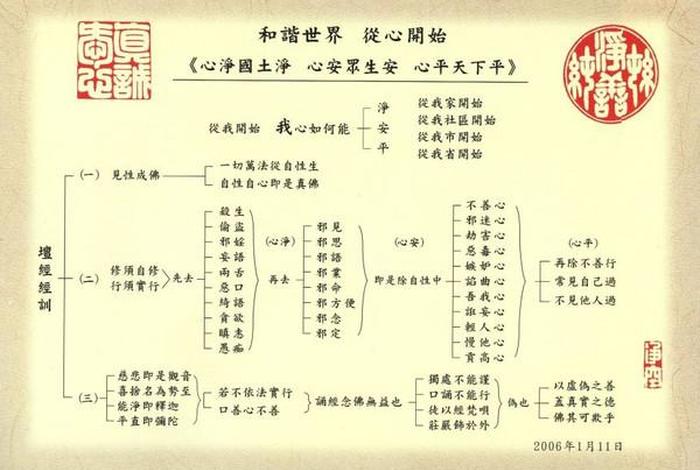 和諧世界 從心開始
《心淨國土淨 心安眾生安 心平天下平》
從我開始 我心如何能
淨
安
平
從我家開始
從我社區開始
從我市開始
從我省開始
壇經經訓
(一) 見性成佛
一切萬法從自性生
自性自心即是真佛
(二) 修須自修
行須實行
先去
殺生
偷盜
邪婬
妄語
兩舌
惡口
綺語
貪欲
瞋恚
愚痴
(心淨)
再去
邪見
邪思
邪語
邪業
邪命
邪方便
邪念
邪定
(心安)
即是除自性中
不善心
邪迷心
劫害心
惡毒心
嫉妒心
諂曲心
吾我心
誑妄心
輕人心
慢他心
貢高心
(心平)
再除不善行
常見自己過
不見他人過
(三)
慈悲即是觀音
喜捨名為勢至
能淨即釋迦
平直即彌陀
若不依法實行
口善心不善
誦經念佛無益也
獨處不能謹
口誦不能行
徒以經梵唄
莊嚴飾於外
偽也
以虛偽之善
蓋真實之德
佛其可欺乎
淨空
2006年1月11日